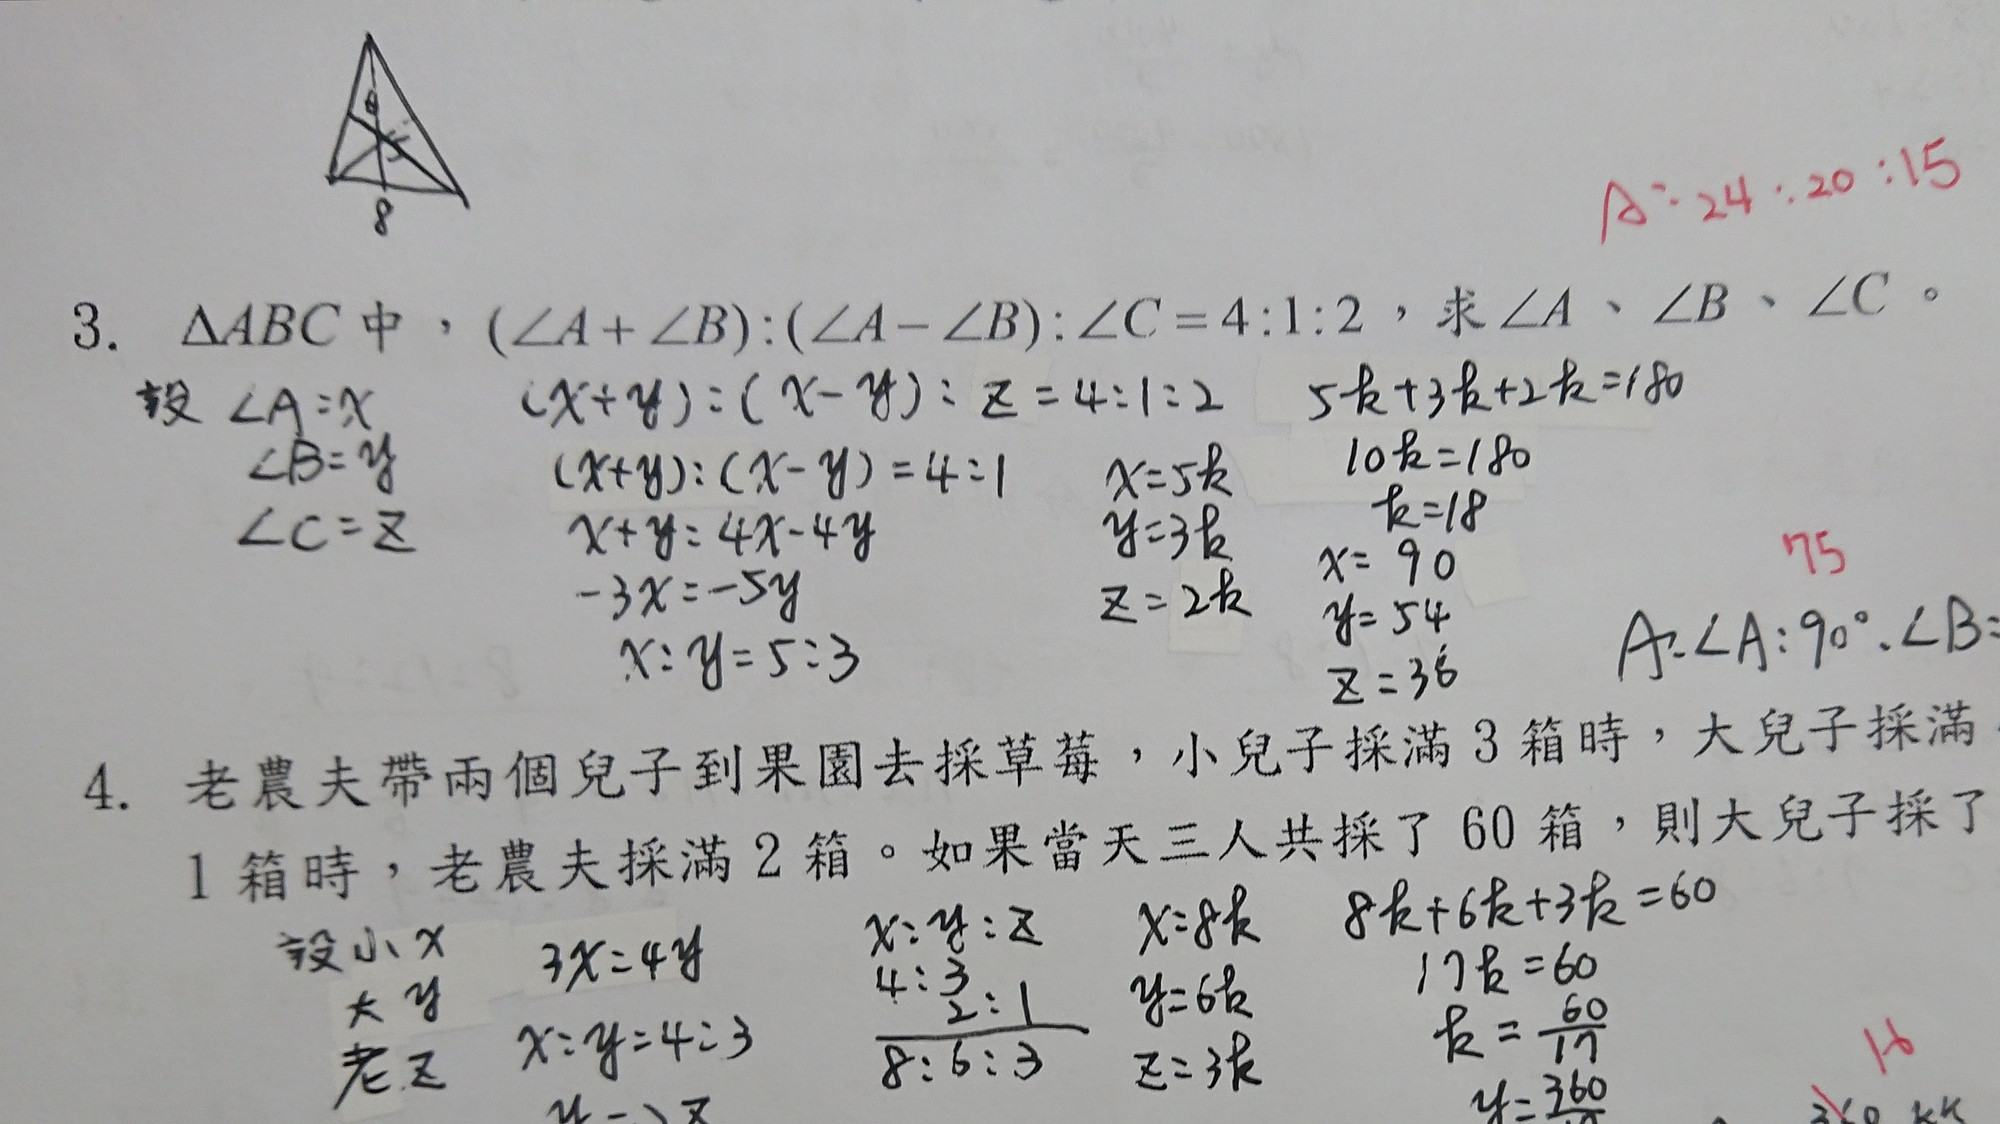 8
A: 24:20:15
3. ΔABC 中，(∠A+∠B):(∠A−∠B):∠C=4:1:2，求∠A、∠B、∠C。
設 ∠A=x
∠B=y
∠C=z
(x+y):(x-y):z=4:1:2
(x+y):(x-y)=4:1
x+y=4x-4y
-3x=-5y
x:y=5:3
x=5k
y=3k
z=2k
5k+3k+2k=180
10k=180
k=18
x=90
y=54
z=36
75
A:∠A:90°、∠B=
4. 老農夫帶兩個兒子到果園去採草莓，小兒子採滿 3 箱時，大兒子採滿
1 箱時，老農夫採滿 2 箱。如果當天三人共採了 60 箱，則大兒子採了
設小 x
大 y
老 z
3x=4y
x:y=4:3
x:y:z
4:3
2:1
8:6:3
x=8k
y=6k
z=3k
8k+6k+3k=60
17k=60
k=60/17
16